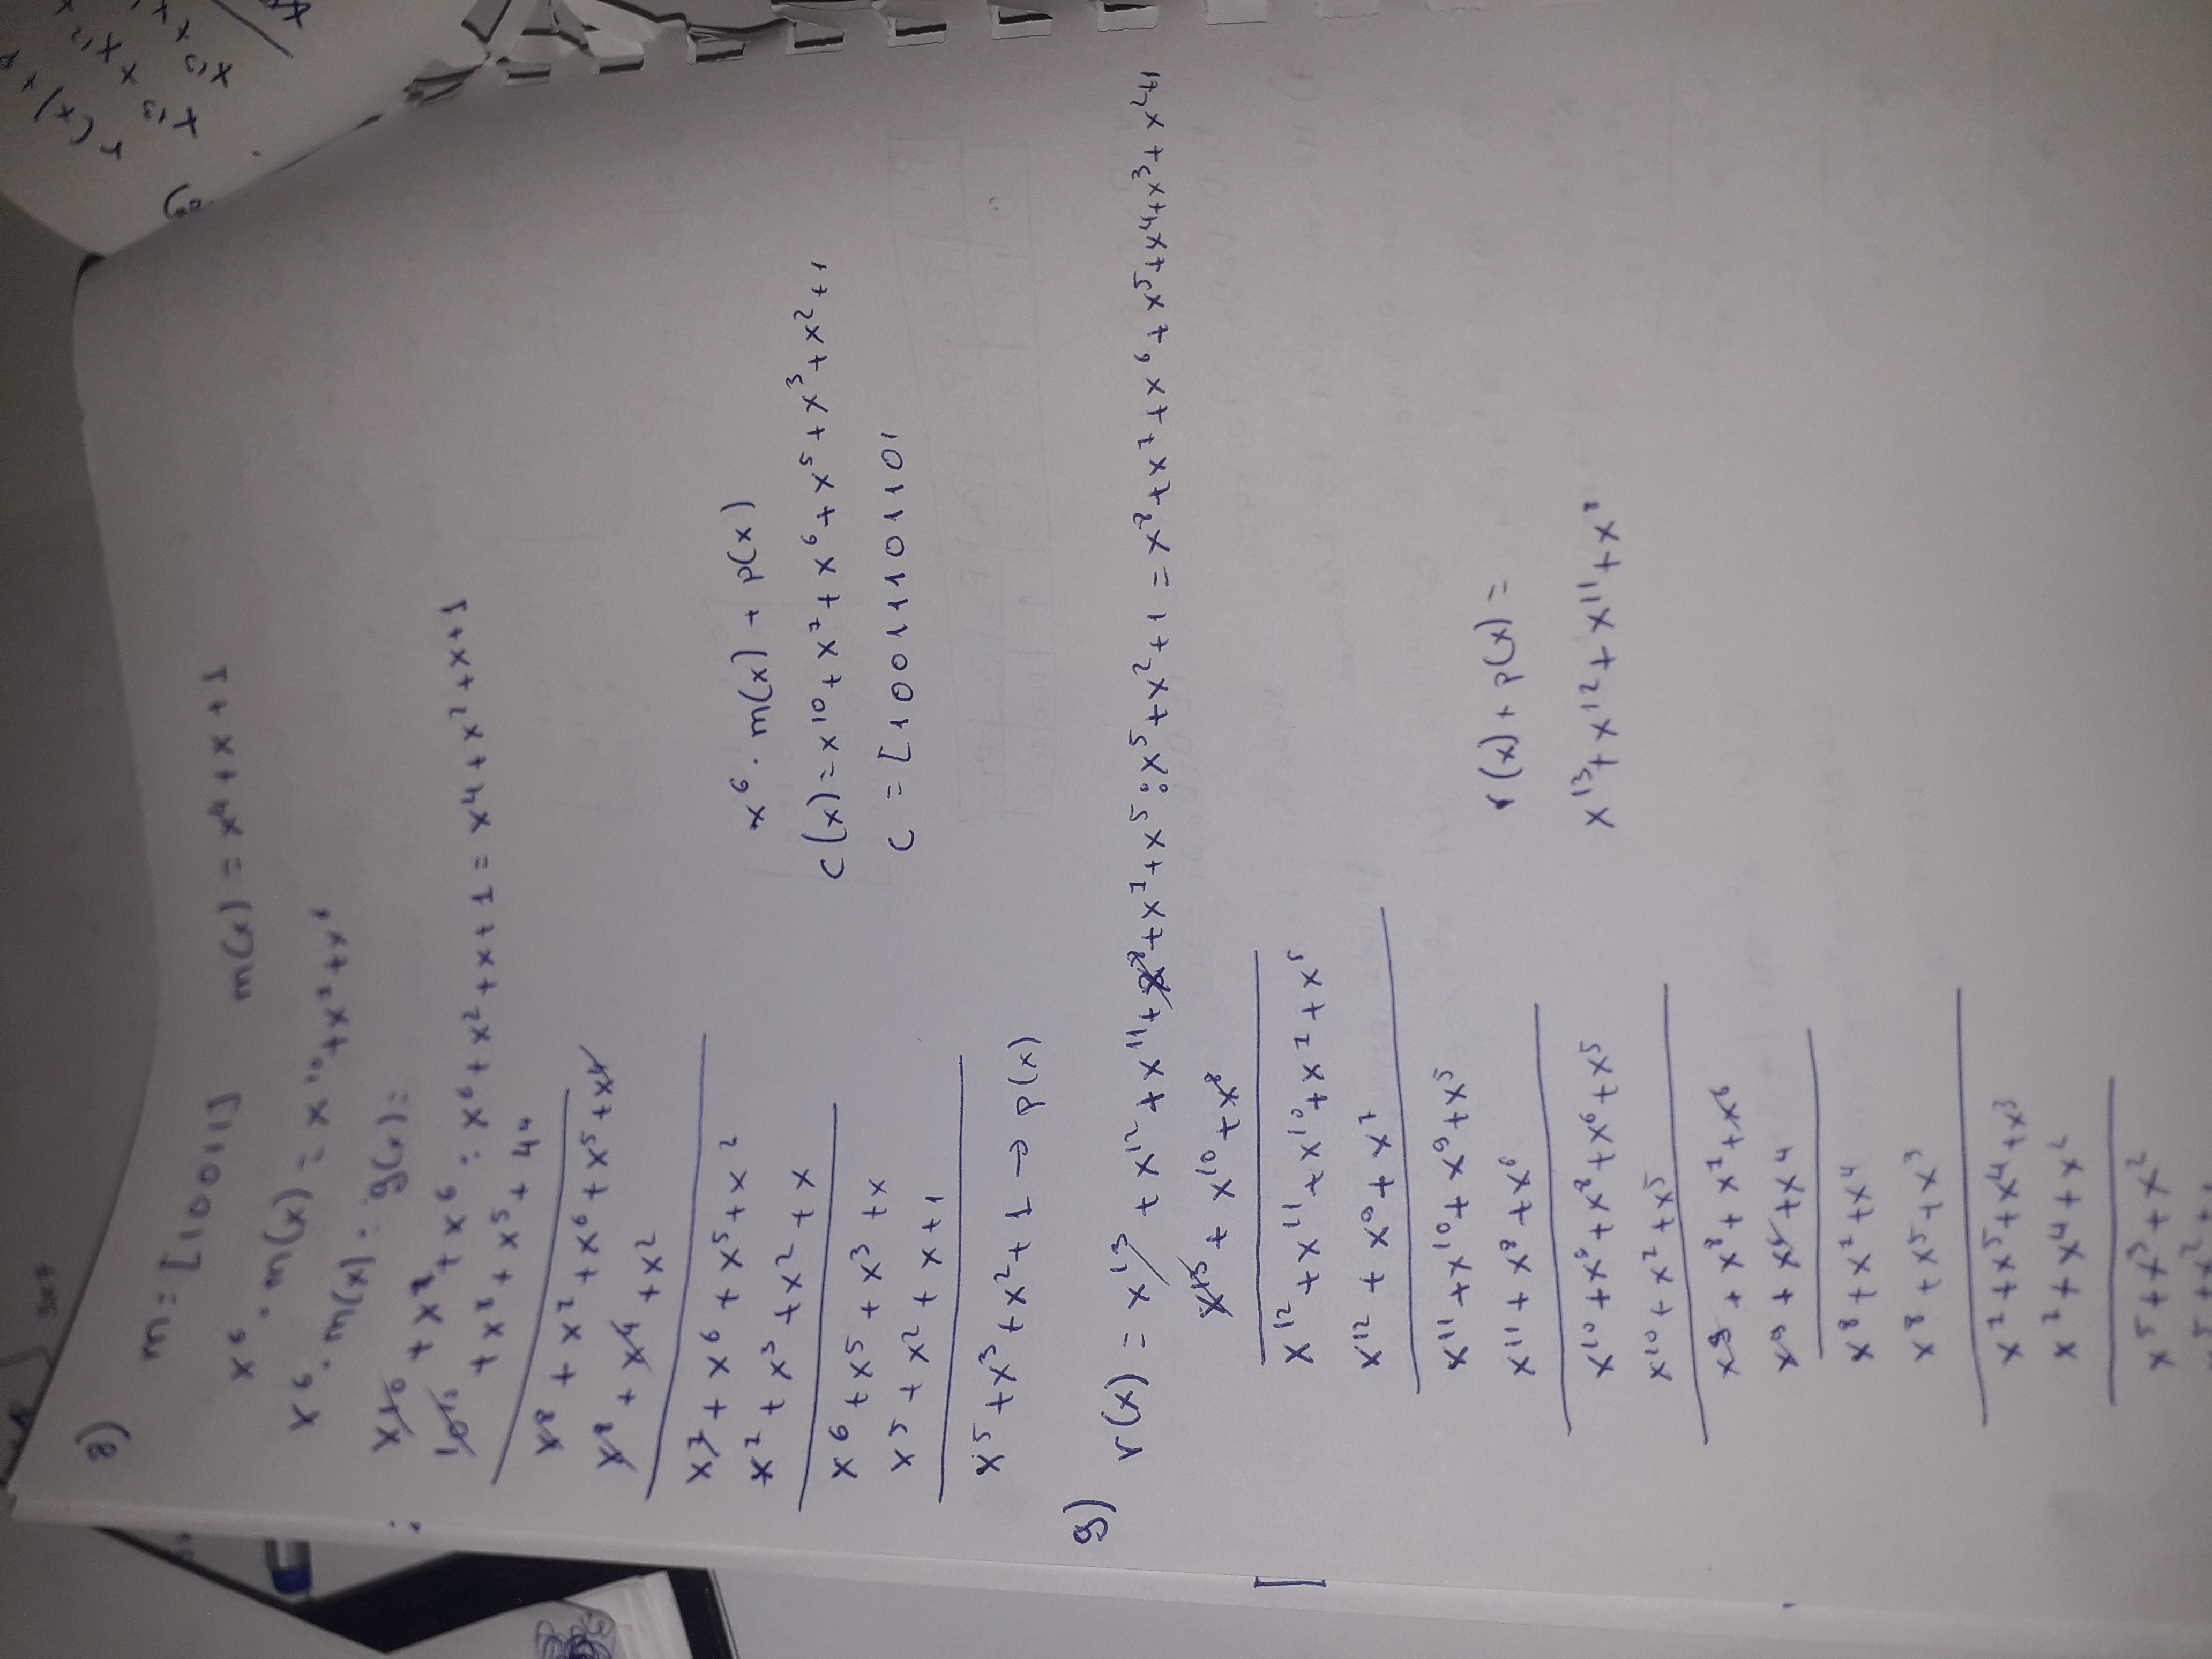 8)
m = [10011]   m(x) = x⁴ + x + 1
x⁶ · m(x) = x¹⁰ + x⁷ + x⁶
x⁶ · m(x) : g(x) =
x¹⁰ + x⁷ + x⁶ : x⁶ + x² + x + 1 = x⁴ + x² + x + 1
10¹⁰ + x⁸ + x⁵ + 4⁴
x⁸ + x⁷ + x⁶ + x⁵ + x⁴
x⁸ + x⁴ + x²
x⁷ + x⁶ + x⁵ + x²
x⁷ + x³ + x² + x
x⁶ + x⁵ + x³ + x
x⁵ + x² + x + 1
x⁵ + x³ + x² + 1 → p(x)
x⁶ · m(x) + p(x)
c(x) = x¹⁰ + x⁷ + x⁶ + x⁵ + x³ + x² + 1
c = [10011101101
9)
r(x) = x¹³ + x¹² + x¹¹ + x⁸ + x⁷ + x⁵ : x⁵ + x² + 1 = x⁸ + x⁷ + x⁶ + x⁵ + x⁴ + x³ + x² + 1
x¹³ + x¹⁰ + x⁸
x¹² + x¹¹ + x¹⁰ + x⁷ + x⁵
x¹² + x⁹ + x⁷
x¹¹ + x¹⁰ + x⁹ + x⁵
x¹¹ + x⁸ + x⁶
x¹⁰ + x⁹ + x⁸ + x⁶ + x⁵
x¹⁰ + x⁷ + x⁵
x⁹ + x⁸ + x⁷ + x⁶
x⁹ + x⁶ + x⁴
x⁸ + x⁷ + x⁴
x⁸ + x⁵ + x³
x⁷ + x⁵ + x⁴ + x³
x⁷ + x⁴ + x²
x⁵ + x³ + x²
r(x) + p(x) =
x¹³ + x¹² + x¹¹ + x⁸
r(x) +
x13 x x12
x13 x